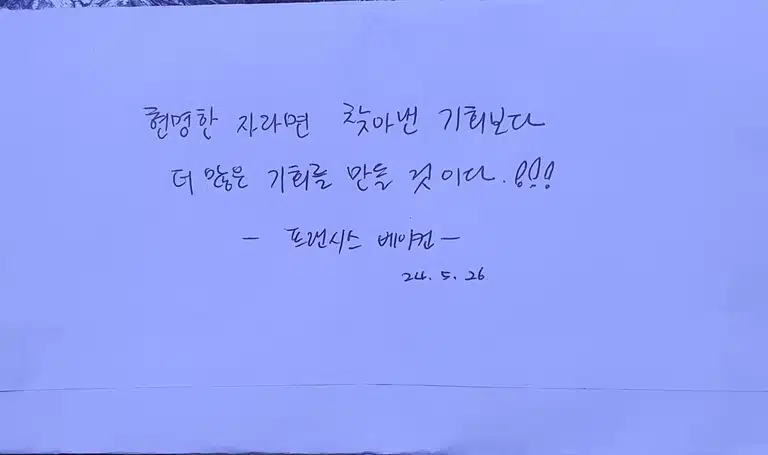 현명한 자라면 찾아낸 기회보다
더 많은 기회를 만들 것이다. !!!
- 프랜시스 베이컨 -
24. 5. 26